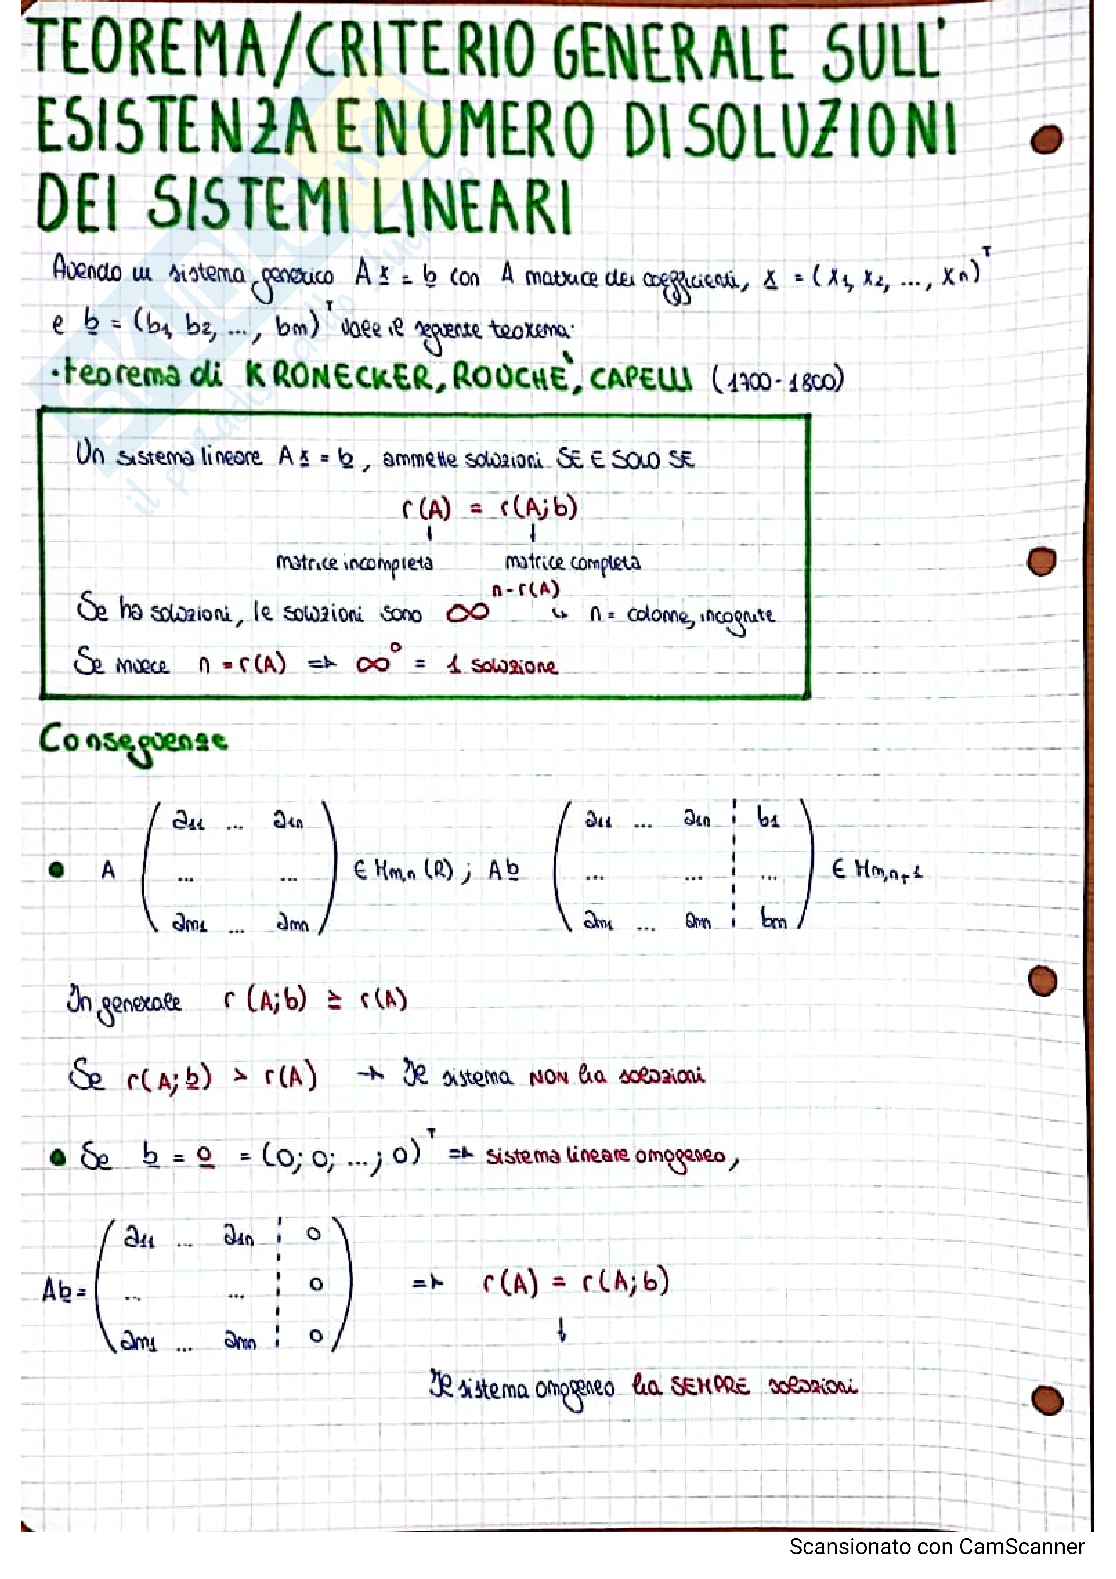 TEOREMA/CRITERIO GENERALE SULL'
ESISTENZA E NUMERO DI SOLUZIONI
DEI SISTEMI LINEARI
Avendo un sistema generico A x = b con A matrice dei coefficienti, x = (x1, x2, ..., xn)^T
e b = (b1, b2, ..., bm)^T vale il seguente teorema:
• teorema di KRONECKER, ROUCHÈ, CAPELLI (1700-1800)
Un sistema lineare A x = b, ammette soluzioni SE E SOLO SE
r(A) = r(A;b)
↓ ↓
matrice incompleta matrice completa
Se ha soluzioni, le soluzioni sono ∞^(n-r(A)) ↳ n = colonne, incognite
Se invece n = r(A) => ∞^0 = 1 soluzione
Conseguenze
a11 ... a1n a11 ... a1n ¦ b1
• A ... ... ∈ Mm,n (R) ; Ab ... ... ¦ ... ∈ Mm,n+1
am1 ... amn am1 ... amn ¦ bm
In generale r (A;b) ≥ r(A)
Se r(A;b) > r(A) → Il sistema NON ha soluzioni
• Se b = 0 = (0; 0; ...; 0)^T => sistema lineare omogeneo,
a11 ... a1n ¦ 0
Ab = ... ... ¦ 0 => r(A) = r(A;b)
am1 ... amn ¦ 0
↓
Il sistema omogeneo ha SEMPRE soluzioni
Scansionato con CamScanner